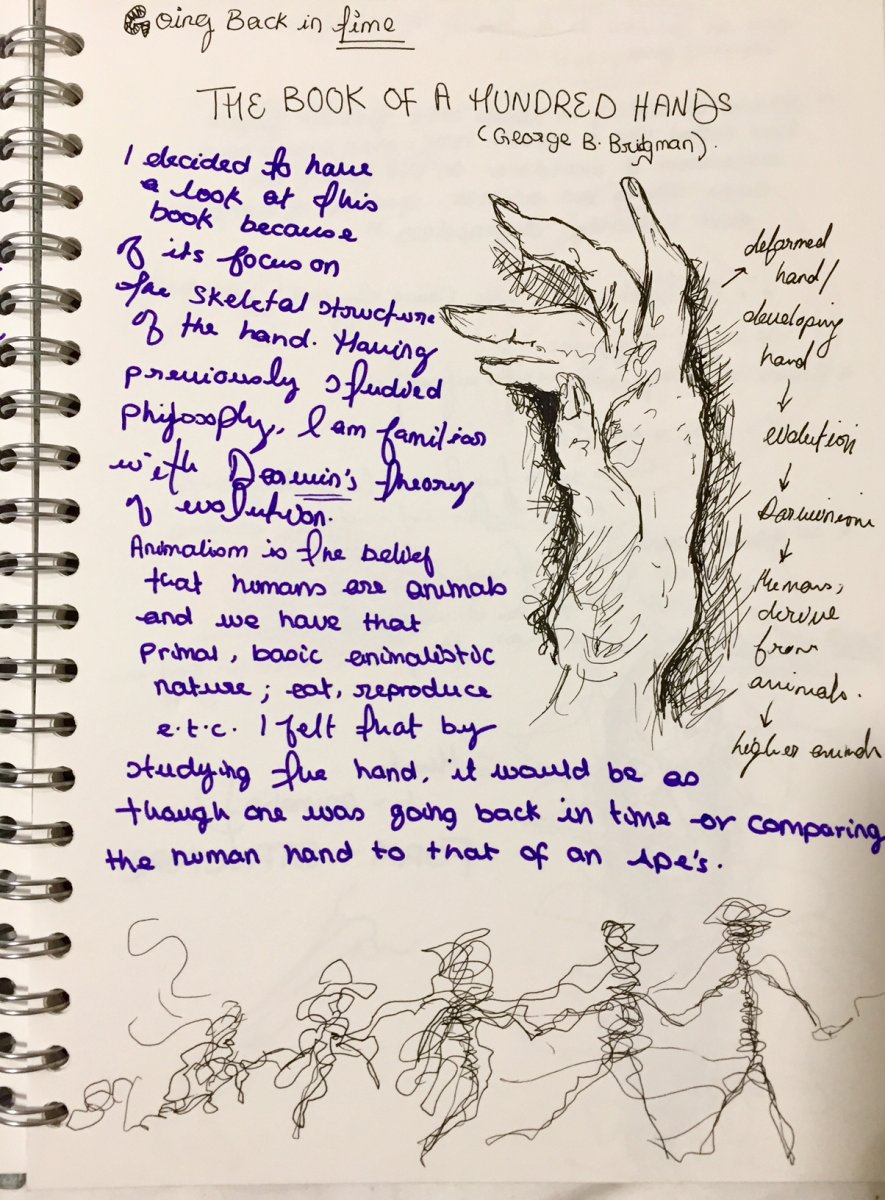 Going Back in time
THE BOOK OF A HUNDRED HANDS
(George B. Bridgman).
I decided to have
a look at this
book because
of its focus on
the skeletal structure
of the hand. Having
previously studied
philosophy, I am familiar
with Darwin's theory
of evolution.
Animalism is the belief
that humans are animals
and we have that
primal, basic animalistic
nature; eat, reproduce
e.t.c. I felt that by
studying the hand, it would be as
though one was going back in time or comparing
the human hand to that of an Ape's.
deformed
hand/
developing
hand
↓
evolution
↓
Darwinism
↓
Humans,
derive
from
animals.
↓
higher animals